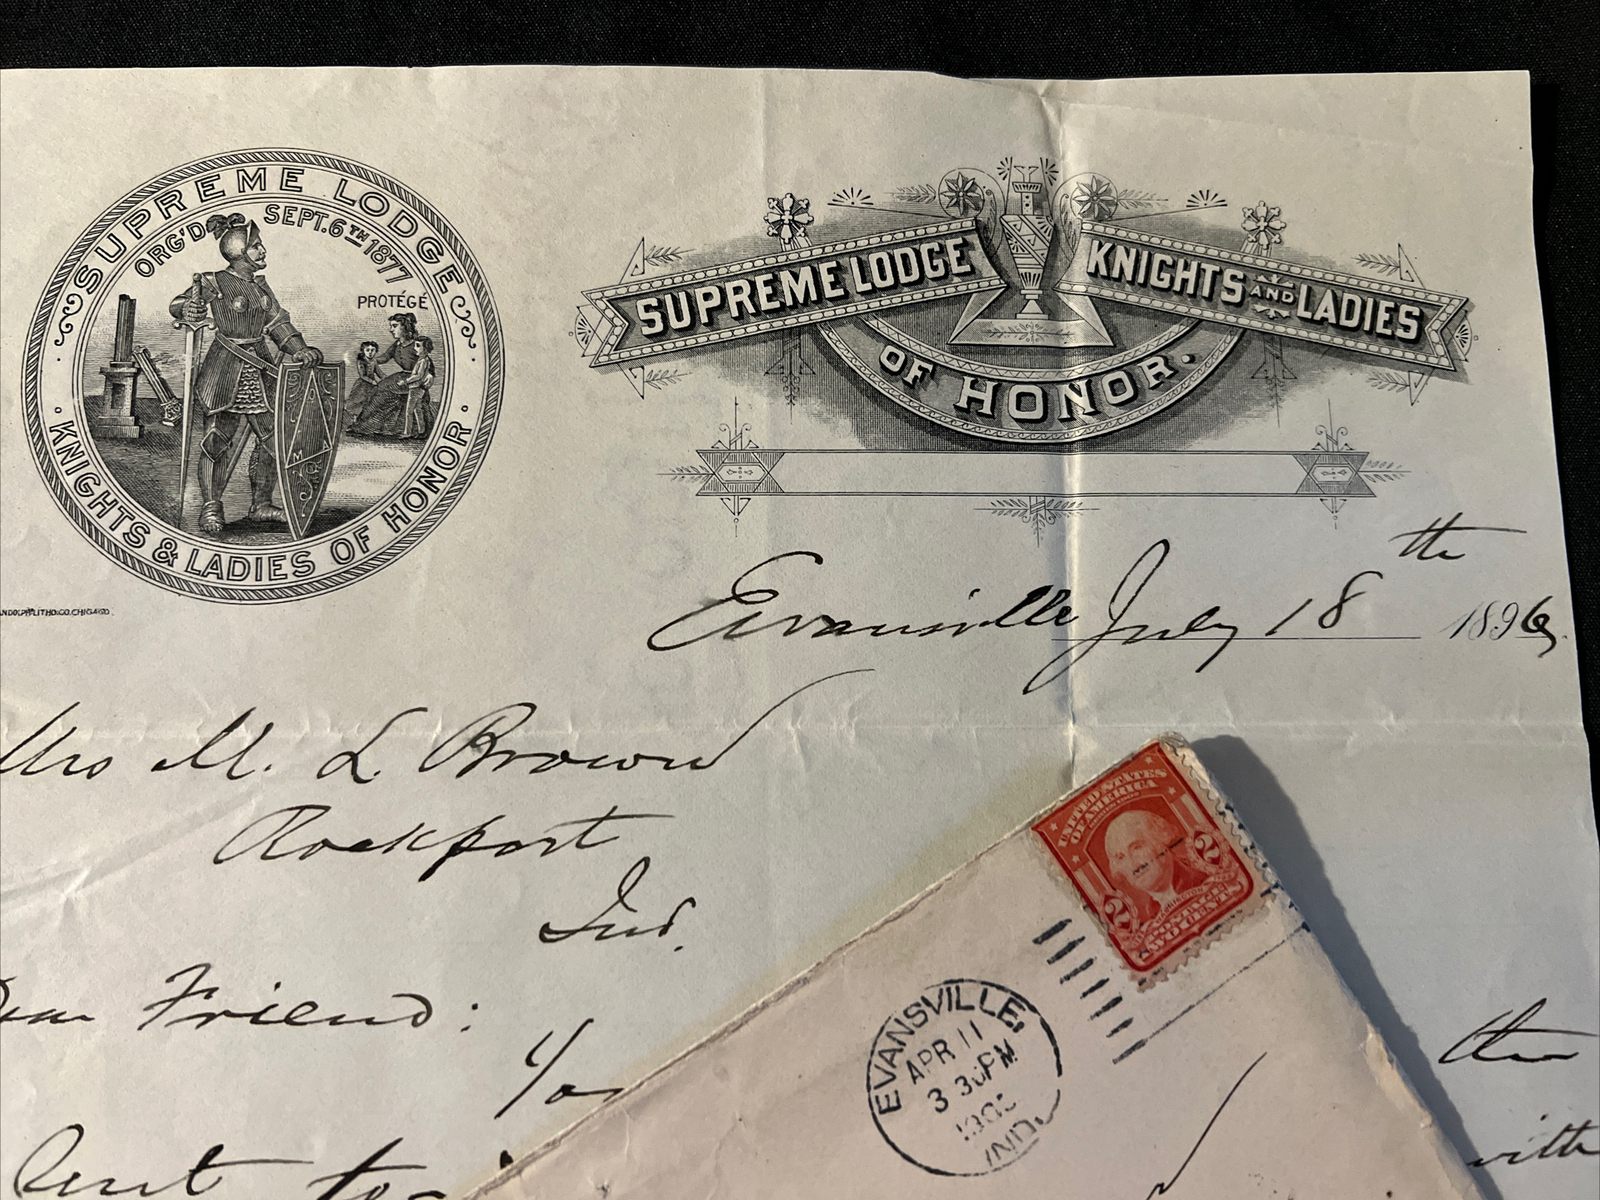 SUPREME LODGE
ORG'D SEPT. 6TH 1877
PROTÉGÉ
M A
KNIGHTS & LADIES OF HONOR
LITHO. CO. CHICAGO.
SUPREME LODGE KNIGHTS AND LADIES
OF HONOR.
Evansville July 18th 1896.
Mrs M. L. Brown
Rockport
Ind.
Dear Friend:
the
with
UNITED STATES
OF AMERICA
2 2
WASHINGTON
POSTAGE
TWO CENTS
EVANSVILLE,
APR 11
3 30 PM
IND.